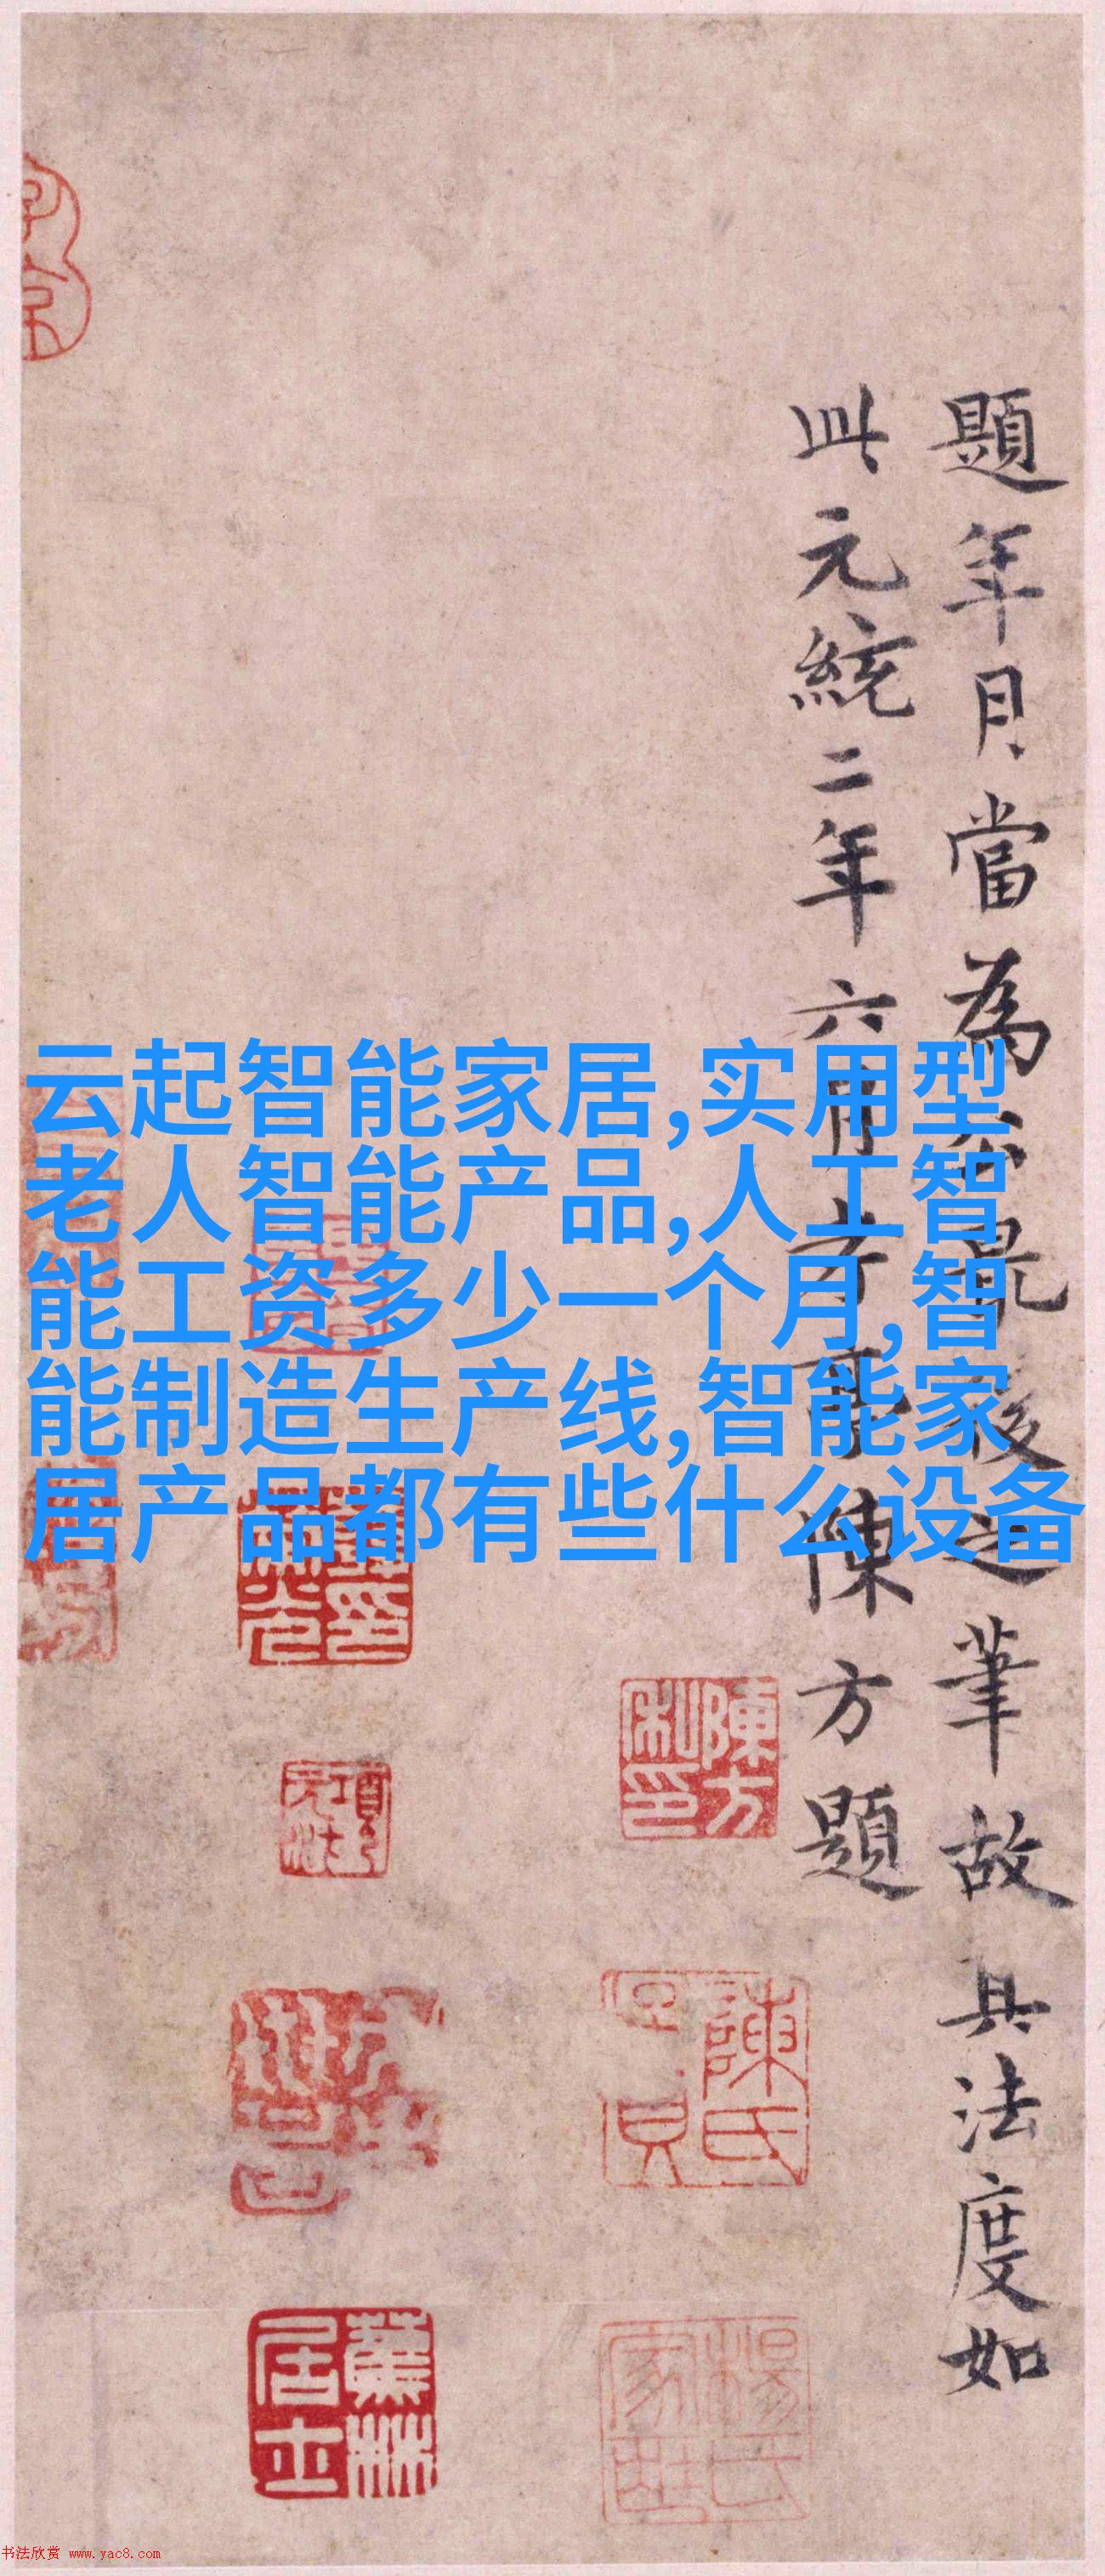 云起智能家居,实用型
老人智能产品,人工智
能工资多少一个月,智
能制造生产线,智能家
居产品都有些什么设备
題年月當為公晁後之筆故其法度如
此元統二年六月方亭陳方題
陳方
私印
陳氏
蕉林
居士
项
书法欣赏 www.yac8.com